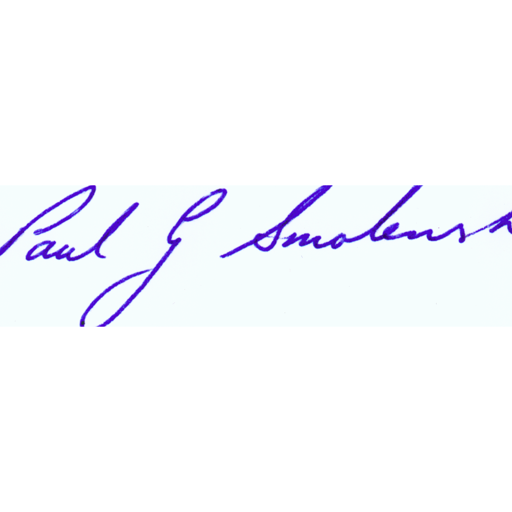 Paul G Smolensk